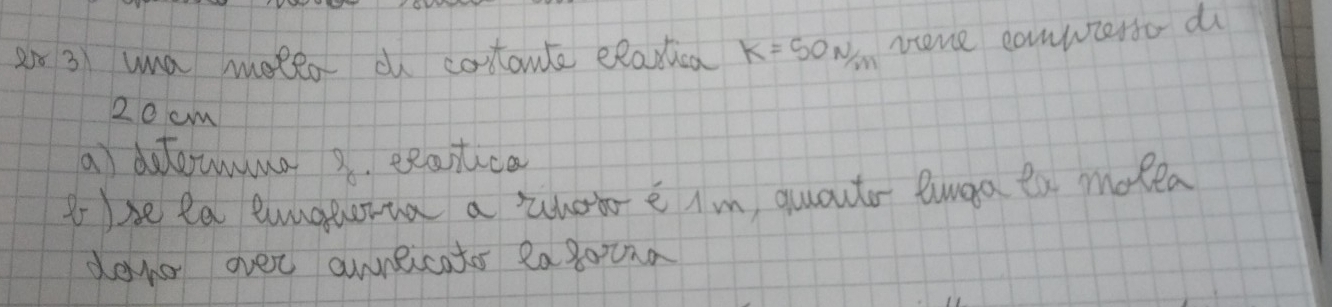 es 3) una molla di costante elastica K = 50 N/m viene compressa di
20 cm
a) determina f. elastica
b) se la lunghezza a riposo è 1 m, quanto lunga la molla
dopo aver applicato la forza